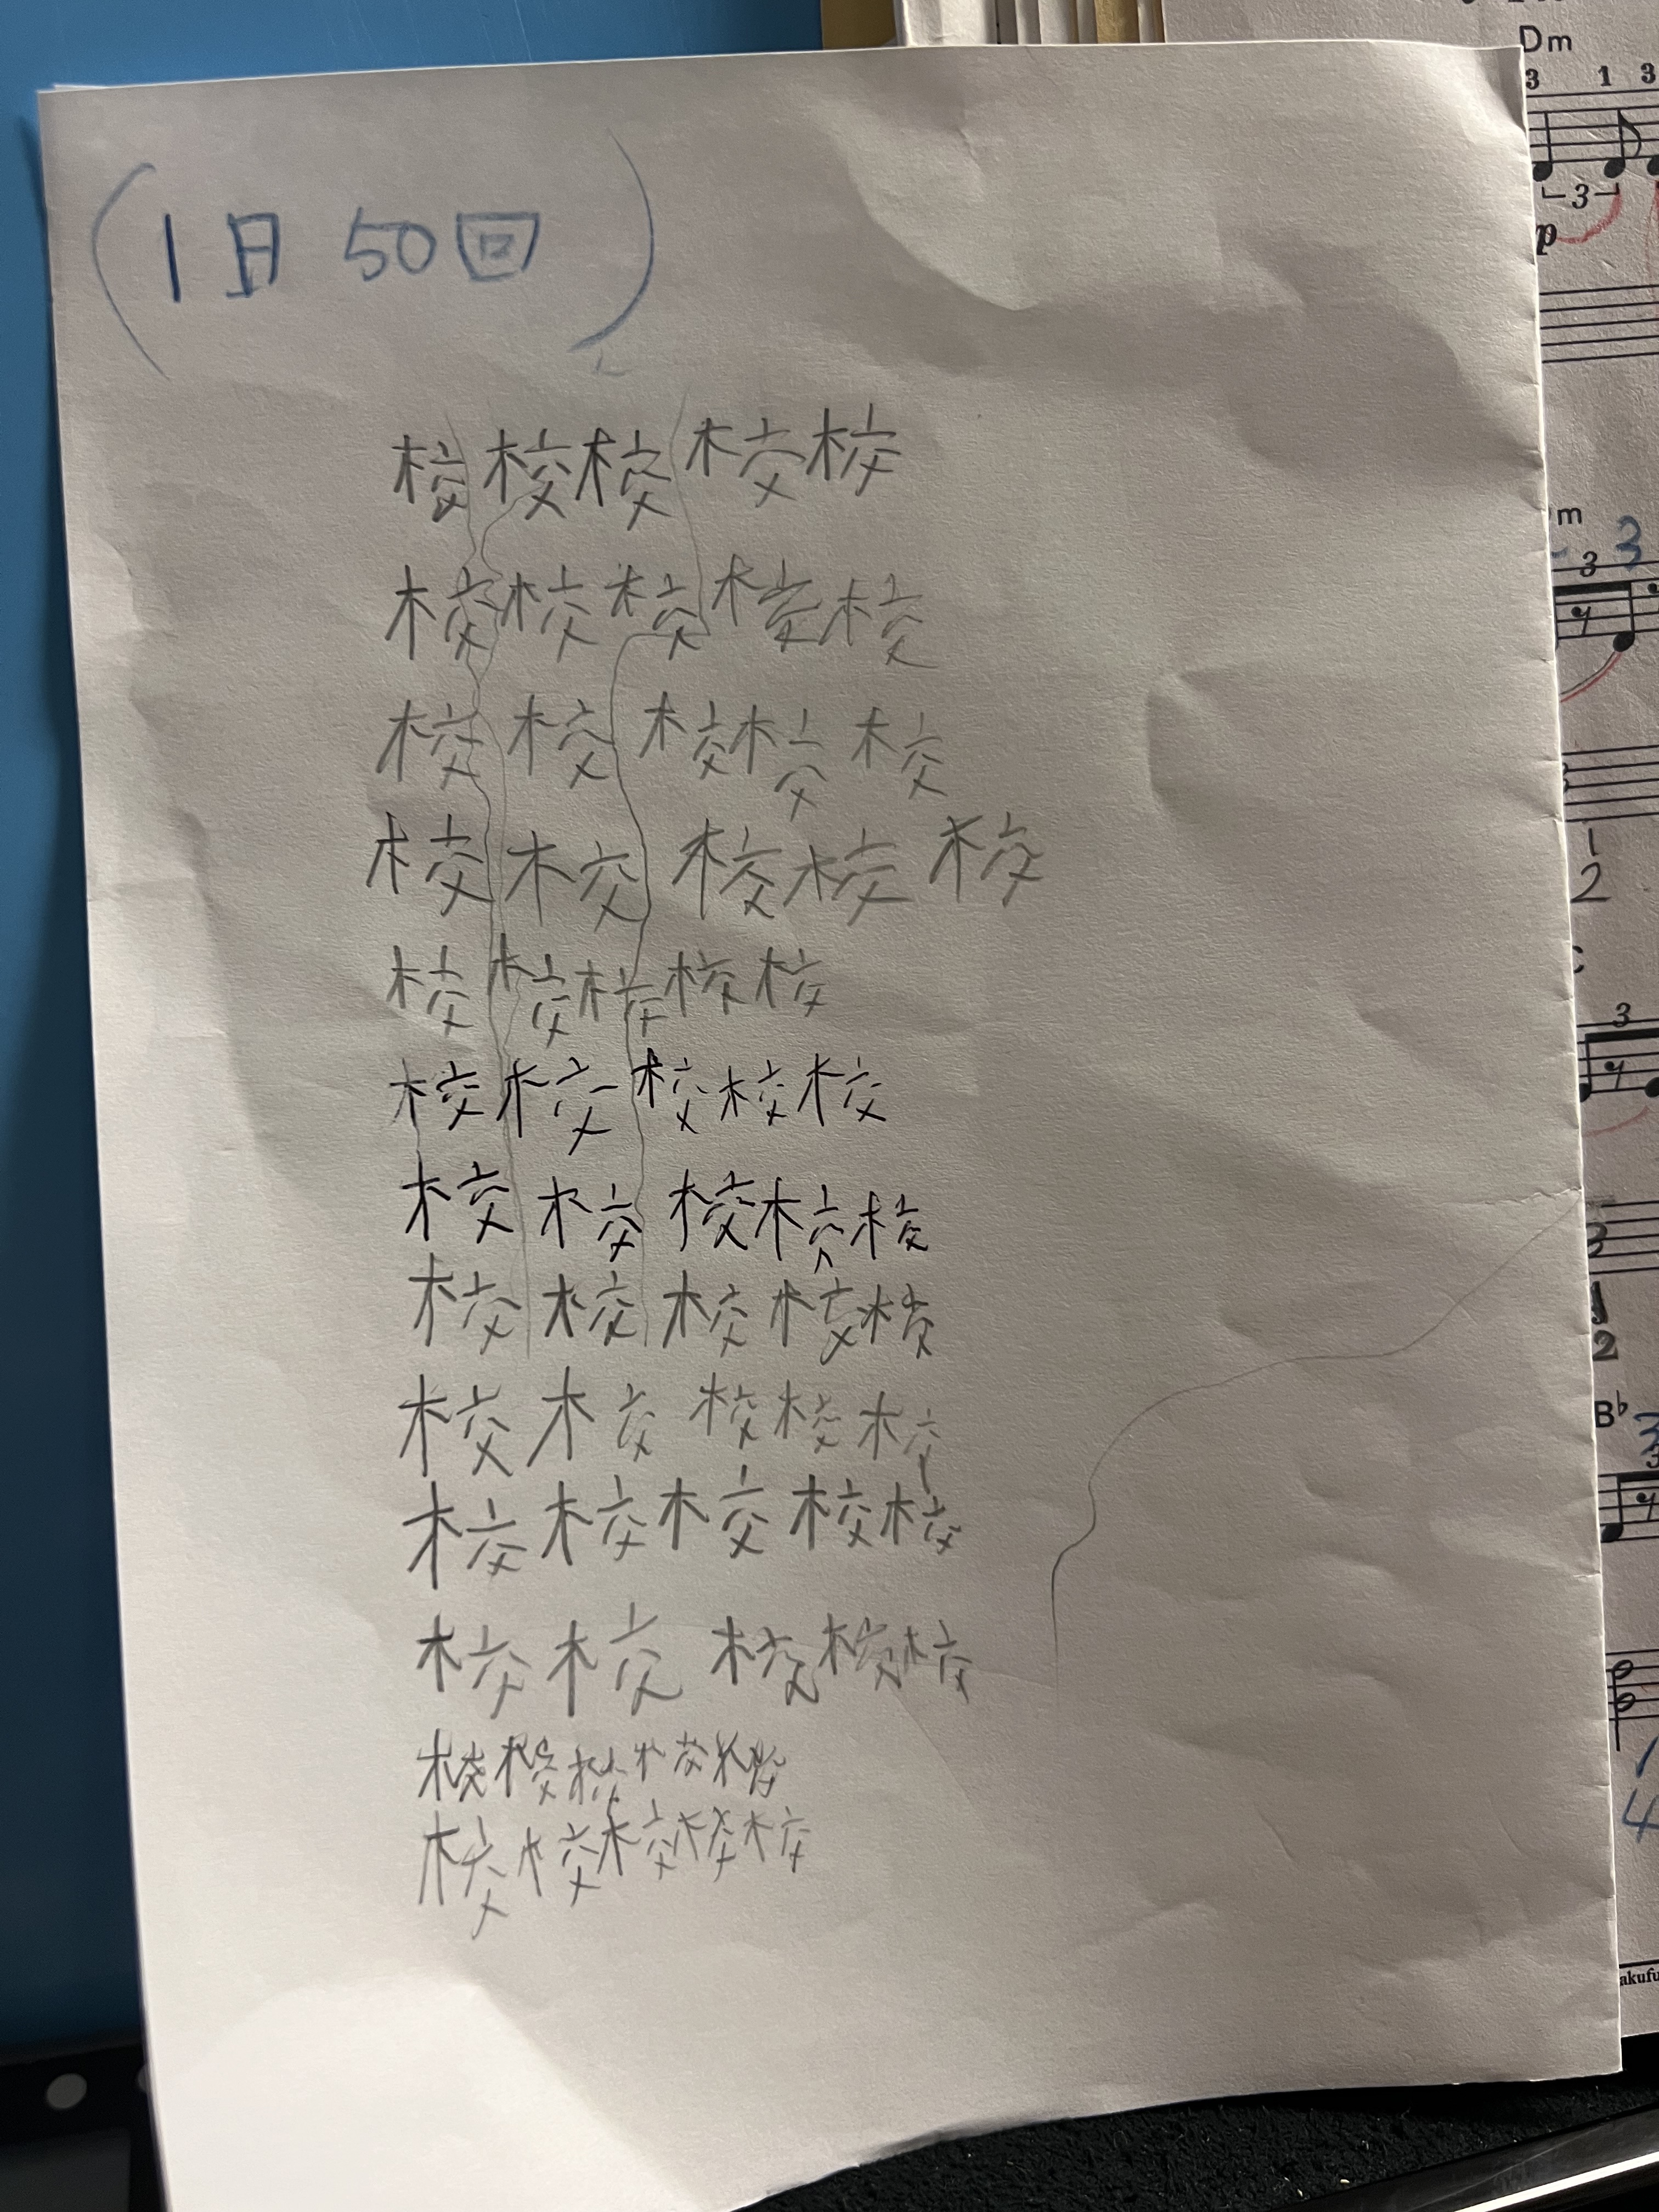 (1日 50回)
校校校校校
校校校校校
校校校校校
校校校校校
校校校校校
校校校校校
校校校校校
校校校校校
校校校校校
校校校校校
校校校校校
校校校校校
校校校校校
Dm
3 1 3
3
p
m
3
3
1
2
3
3
1
2
B♭
3
4
akufu